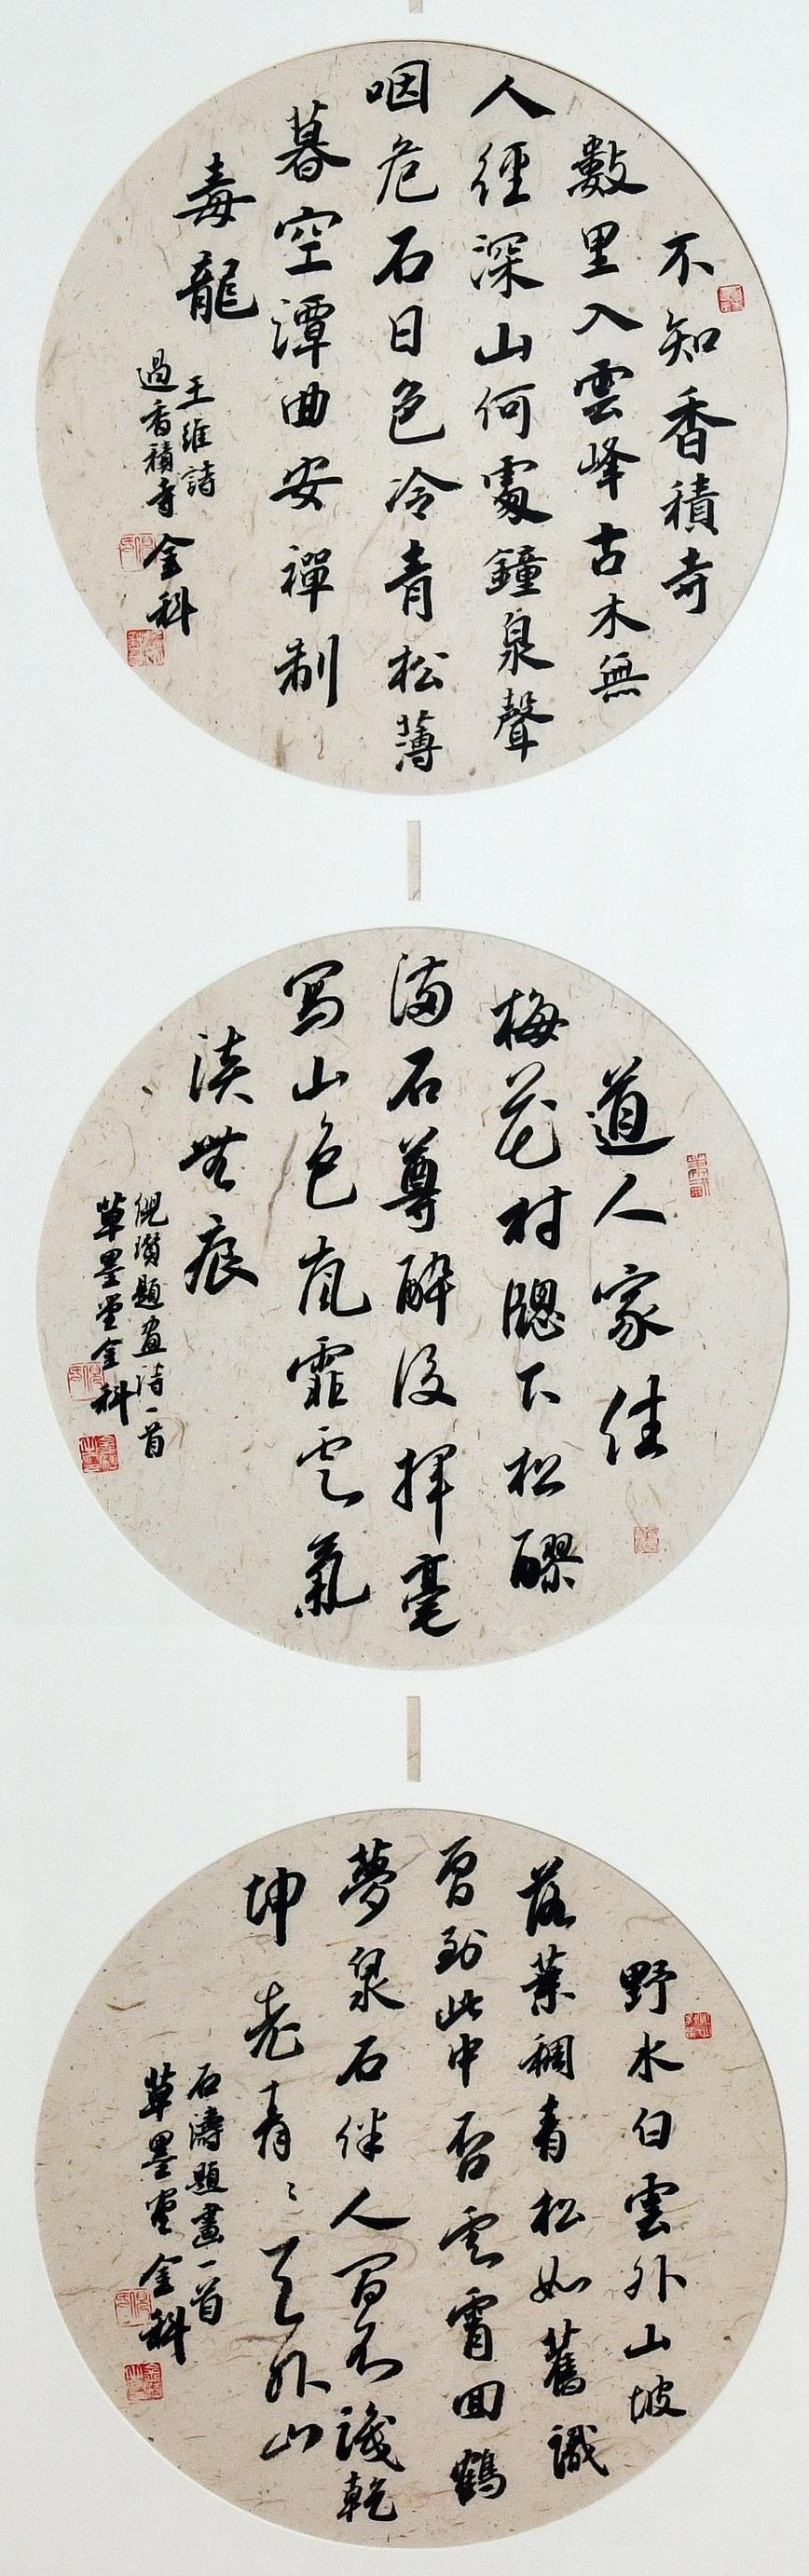 不知香積寺
數里入雲峰古木無
人徑深山何處鐘泉聲
咽危石日色冷青松薄
暮空潭曲安禪制
毒龍
王維詩
過香積寺
金科
道人家住
梅花村窗下松醪
滿石尊醉後揮毫
寫山色嵐霏雲氣
淡無痕
倪瓚題畫詩一首
草墨堂金科
野水白雲外山坡
落葉稠青松如舊識
曾到此中否雲霄回鶴
夢泉石伴人間不識乾
坤老青青天外山
石濤題畫一首
草墨堂金科